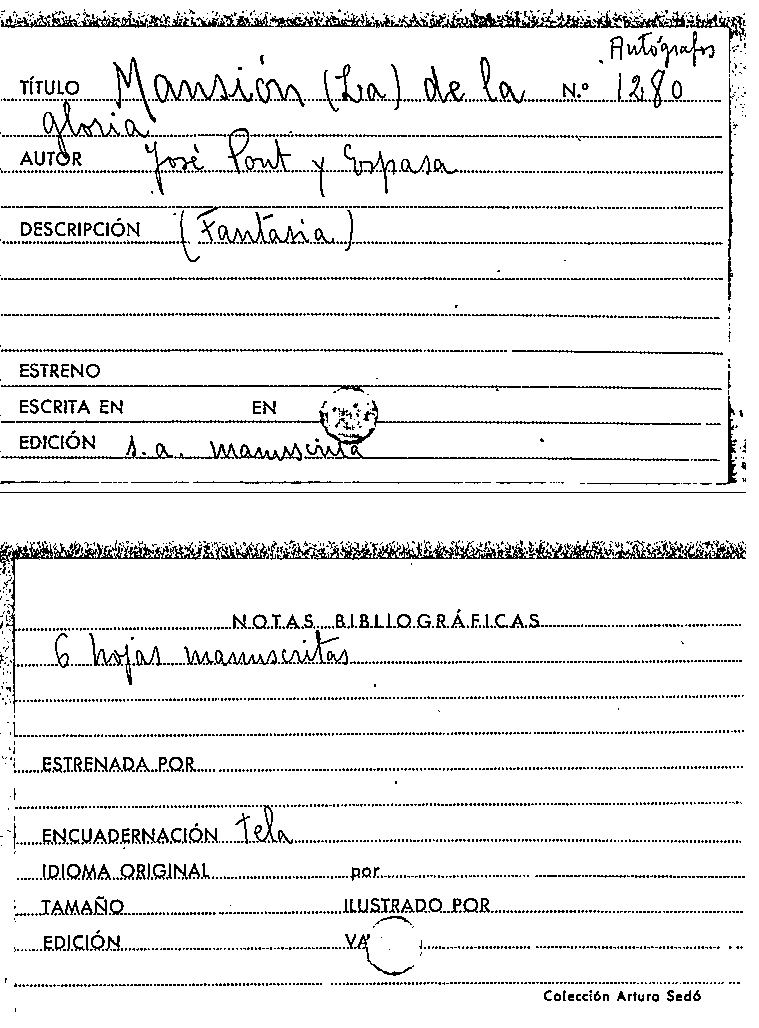 Autógrafos
TÍTULO Mansión (La) de la N.º 1280
gloria
AUTOR José Pont y Espasa
DESCRIPCIÓN (Fantasia)
ESTRENO
ESCRITA EN EN
EDICIÓN s.a. manuscrita
NOTAS BIBLIOGRÁFICAS
6 hojas manuscritas
ESTRENADA POR
ENCUADERNACIÓN tela
IDIOMA ORIGINAL por
TAMAÑO ILUSTRADO POR
EDICIÓN
Colección Arturo Sedó